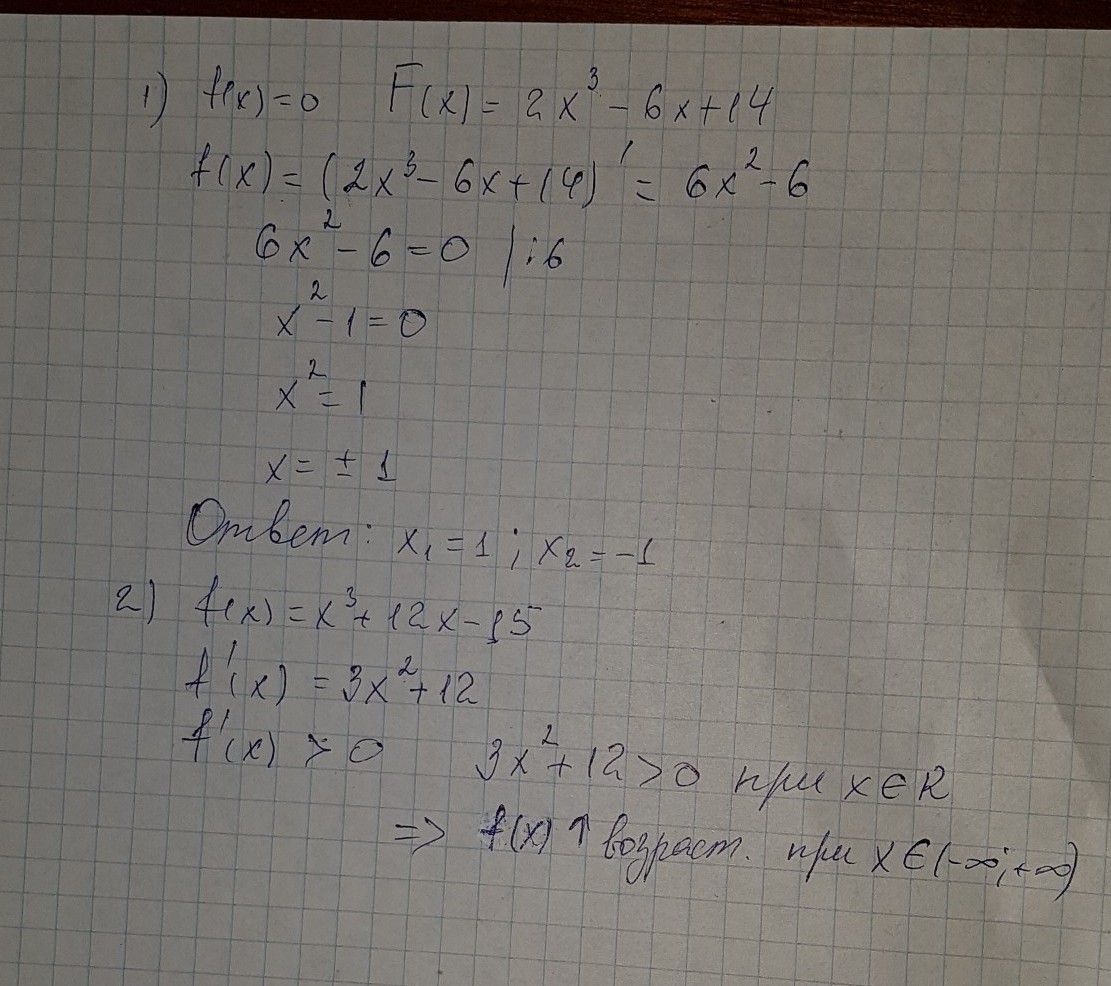 1) f(x)=0 F(x)= 2x³ - 6x+14
f(x)= (2x³- 6x+14)' = 6x²-6
6x² - 6 =0 |:6
x² - 1=0
x² = 1
x= ± 1
Ответ: x₁ =1 ; x₂ = -1
2) f(x) = x³+ 12x -15
f'(x) = 3x²+12
f'(x) > 0 3x²+12>0 при x∈R
=> f(x) ↑ возраст. при x∈(-∞;+∞)